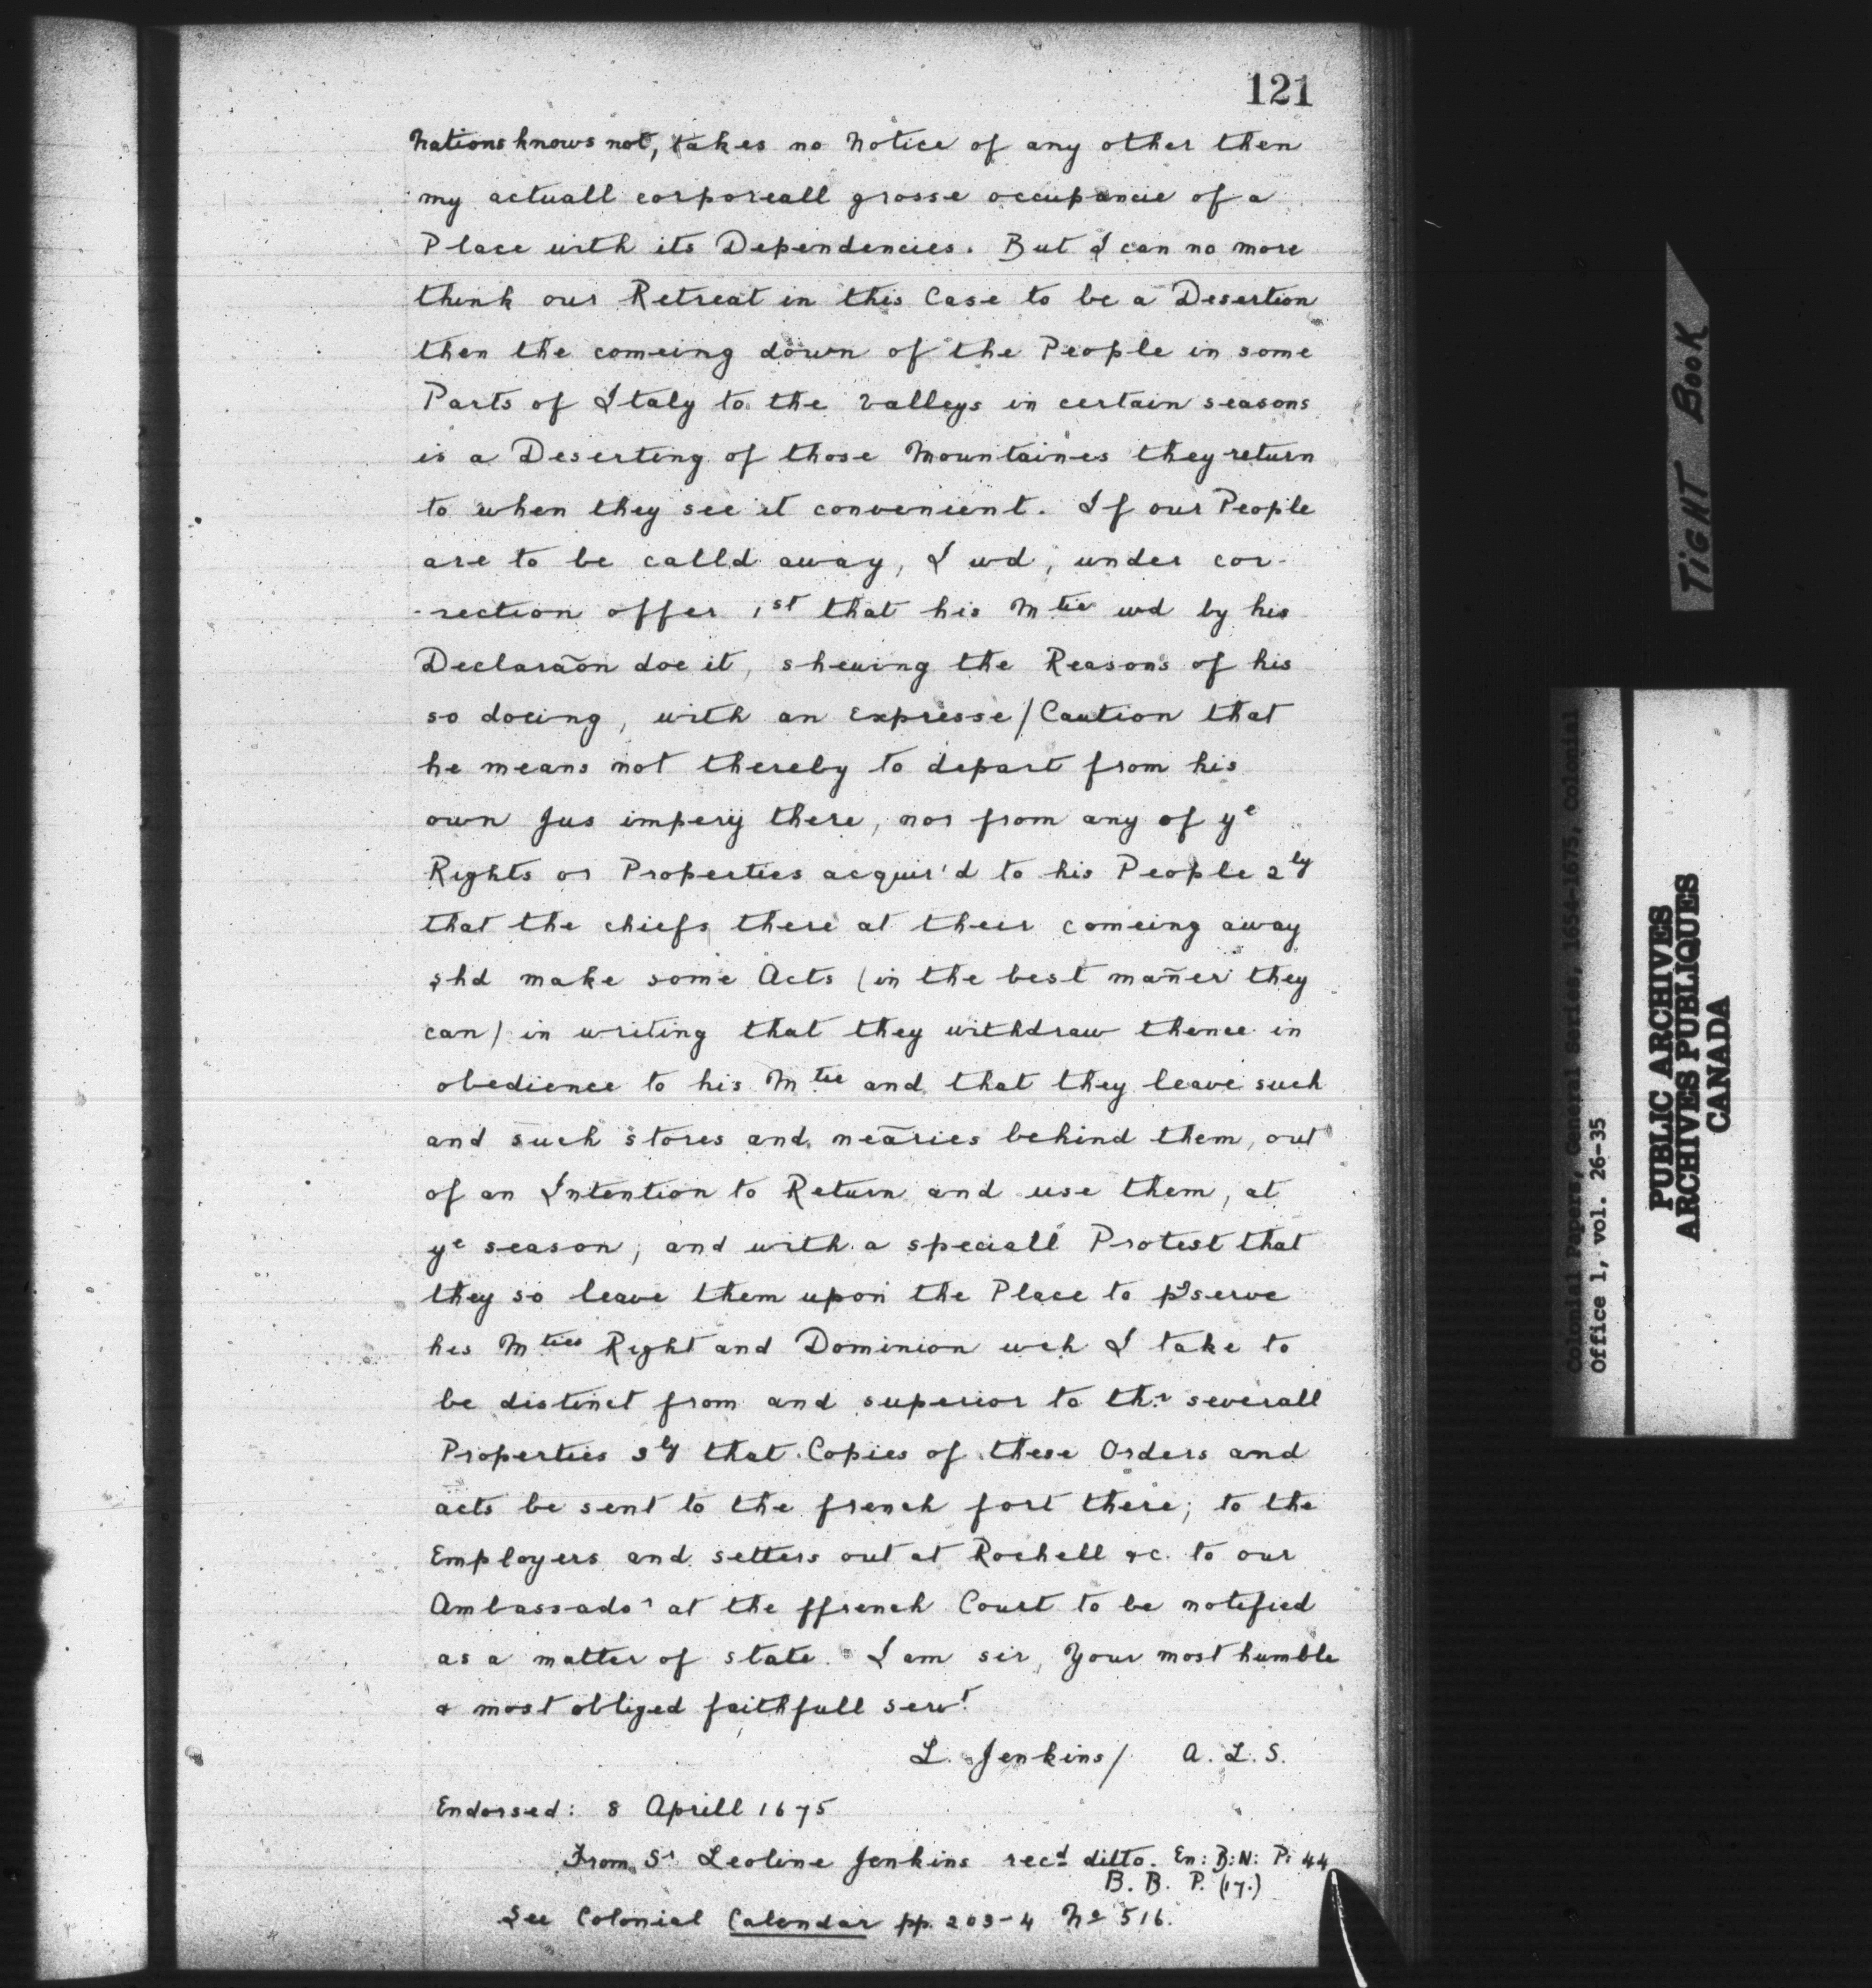 121
Nations knows not, takes no Notice of any other then
my actuall corporeall grosse occupancie of a
Place with its Dependencies. But I can no more
think our Retreat in this Case to be a Desertion
then the comeing down of the People in some
Parts of Italy to the valleys in certain seasons
is a Deserting of those Mountaines they return
to when they see it convenient. If our People
are to be calld away, I wd, under cor-
-rection offer 1st that his Mtie wd by his
Declaraõn doe it, shewing the Reasons of his
so doeing, with an Expresse / Caution that
he means not thereby to depart from his
own Jus imperij there, nor from any of ye
Rights or Properties acquir'd to his People 2ly
that the chiefs there at their comeing away
shd make some Acts (in the best mañer they
can) in writing that they withdraw thence in
obedience to his Mtie and that they leave such
and such stores and nēaries behind them, out
of an Intention to Return and use them, at
ye season, and with a speciall Protest that
they so leave them upon the Place to p̃serve
his Mties Right and Dominion wch I take to
be distinct from and superior to thr severall
Properties 3ly that Copies of these Orders and
acts be sent to the french fort there; to the
Employers and setters out at Rochell &c. to our
Ambassador at the ffrench Court to be notified
as a matter of state. I am sir, Your most humble
& most obliged faithfull servt
L. Jenkins / A. L. S.
Endorsed: 8 Aprill 1675
From Sr Leoline Jenkins recd ditto. En: B: N: P: 44
B. B. P. (17.)
See Colonial Calendar pp. 203-4 No 516.
TIGHT BOOK
Colonial Papers, General Series, 1654-1675, Colonial
Office 1, vol. 26-35
PUBLIC ARCHIVES
ARCHIVES PUBLIQUES
CANADA